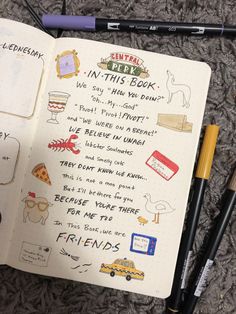 WEDNESDAY
CENTRAL
PERK
-IN THIS BOOK-
We say "HOW YOU DOIN?"
"Oh...My...God"
"Pivot! Pivot! PIVOT!"
and "WE WERE ON A BREAK!"
WE BELIEVE IN UNAGI
lobster Soulmates
and smelly cats
THEY DON'T KNOW WE KNOW...
This is not a moo point
But I'll be there for you
BECAUSE YOU'RE THERE
FOR ME TOO
In this Book, we are
F·R·I·E·N·D·S
TAXI